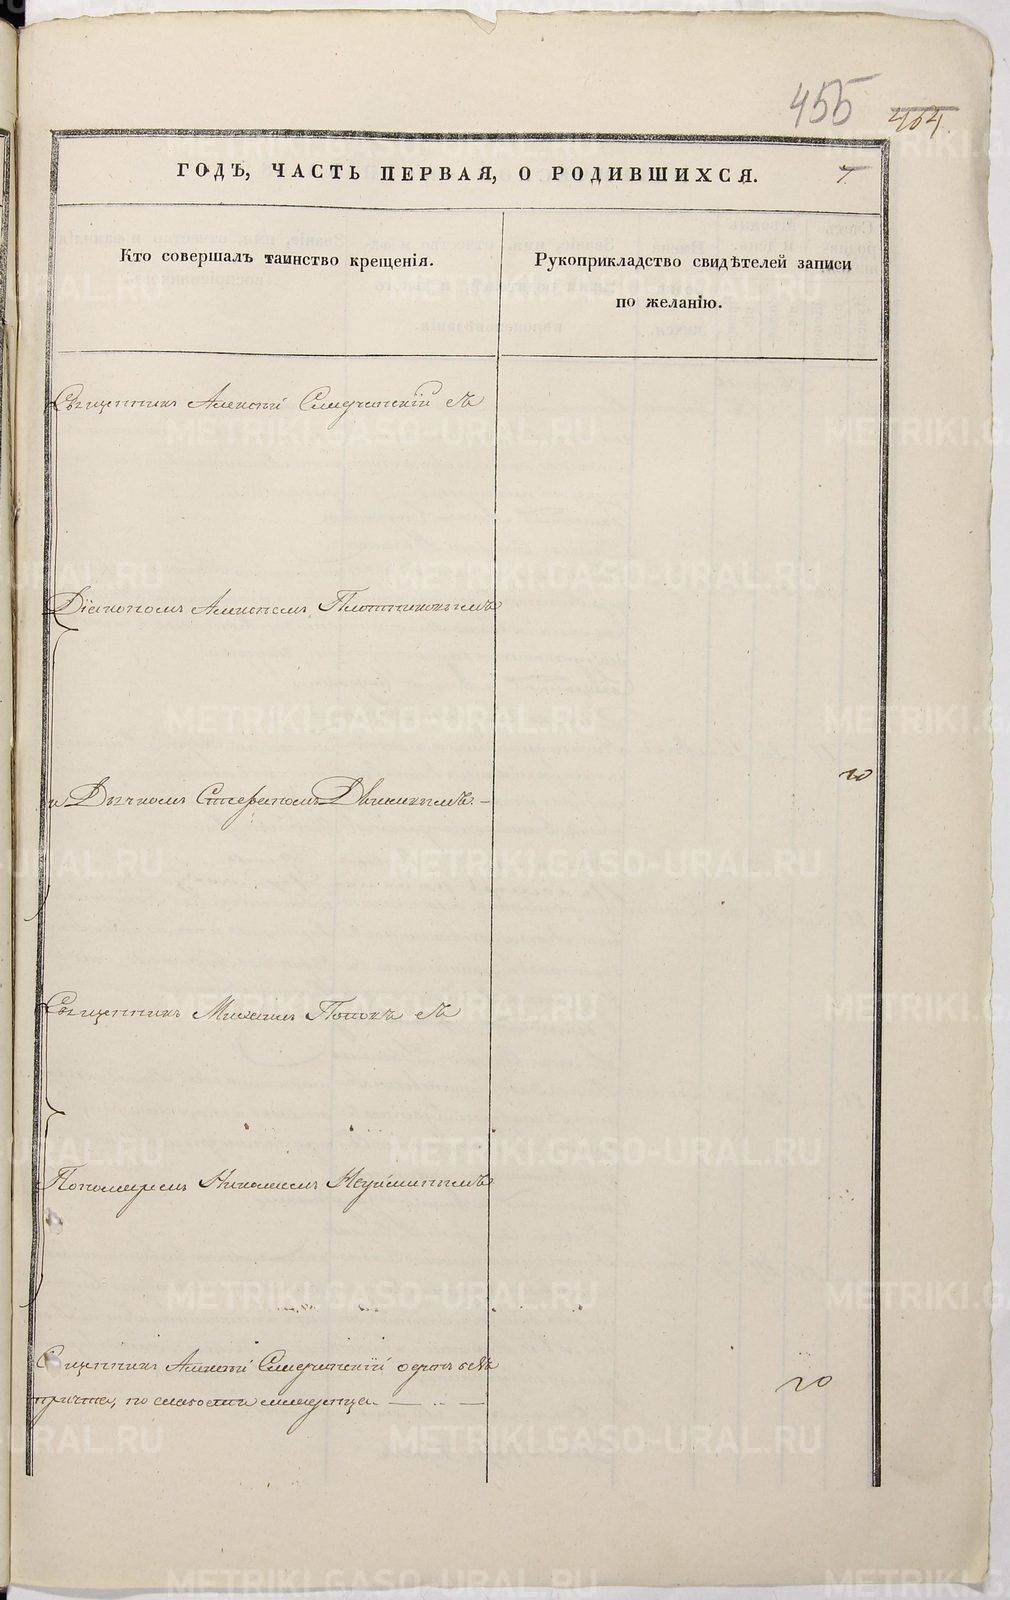 455
404
7.
ГОДЪ, ЧАСТЬ ПЕРВАЯ, О РОДИВШИХСЯ.
Кто совершалъ таинство крещенія.
Рукоприкладство свидѣтелей записи
по желанію.
Священникъ Алексѣй съ
Діакономъ Алексѣемъ Плотниковымъ
и Дьячкомъ Стефаномъ
Священникъ Михаилъ Поповъ съ
Пономаремъ Николаемъ Неуйминымъ
Священникъ Алексѣй одинъ безъ
причта, по слабости младенца.
METRIKI.GASO-URAL.RU